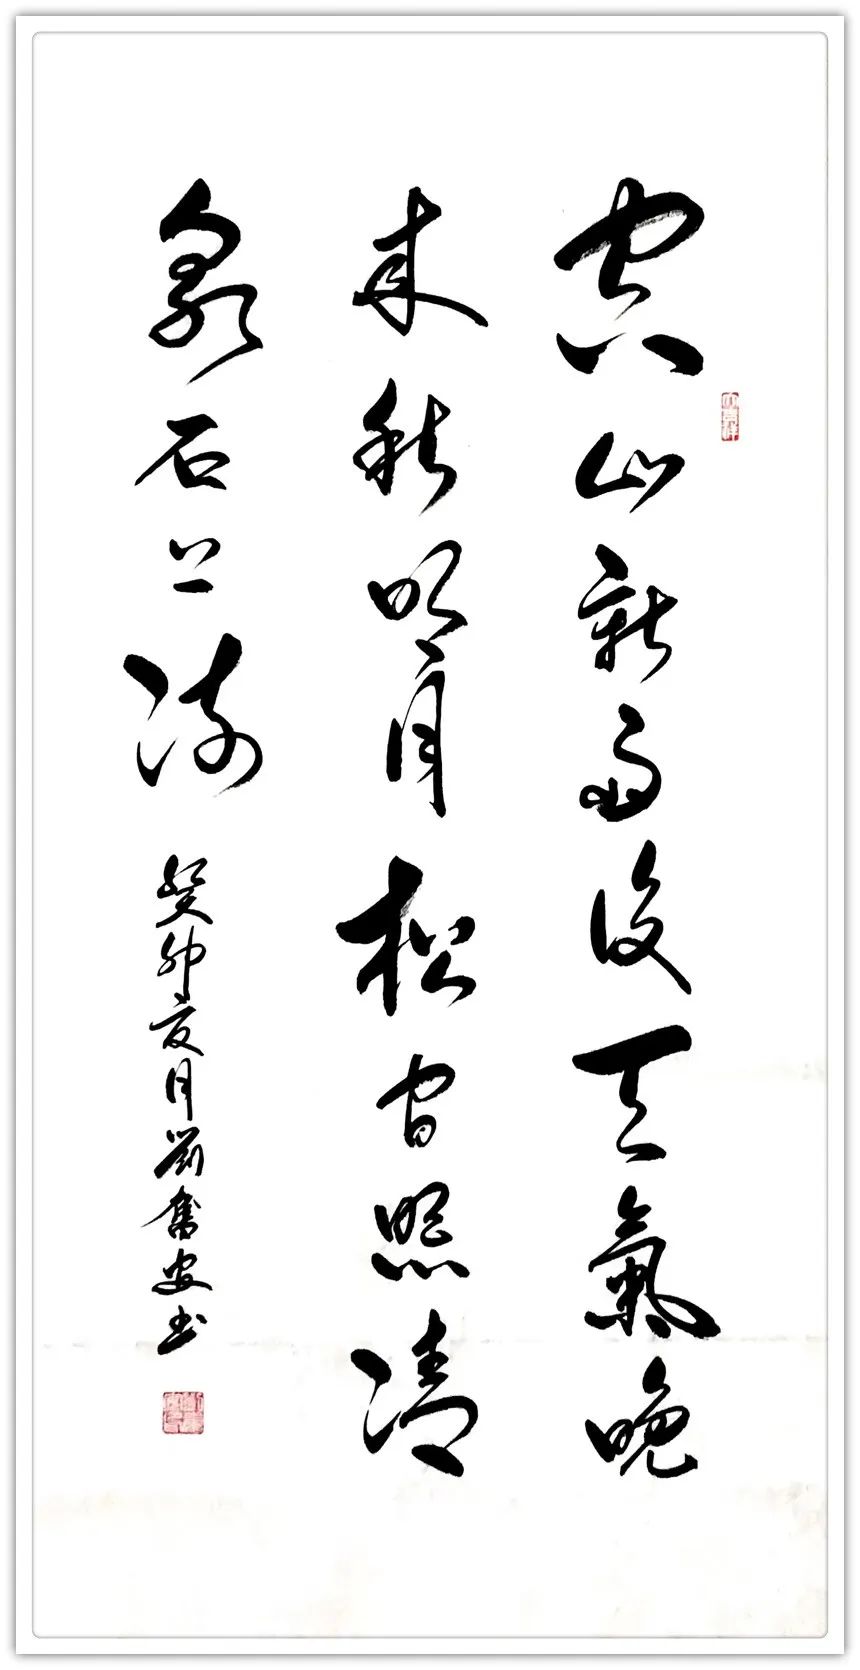 空山新雨後天氣晚
来秋明月松间照清
泉石上流
癸卯亥月劉奮安书